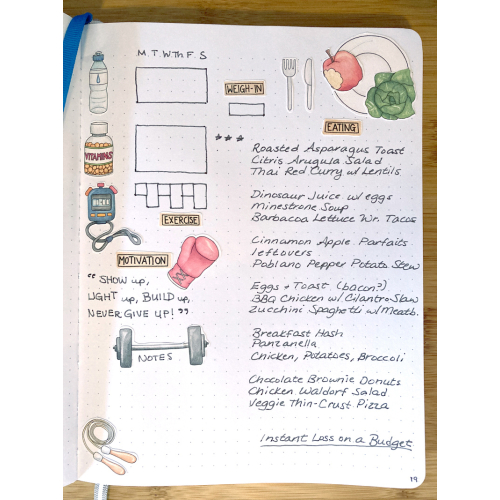 M. T. W. Th. F. S
WEIGH-IN
VITAMINS
EXERCISE
MOTIVATION
"SHOW up,
LIGHT up, BUILD up,
NEVER GIVE UP!"
NOTES
EATING
Roasted Asparagus Toast
Citris Arugula Salad
Thai Red Curry w/ Lentils
Dinosaur Juice w/ eggs
Minestrone Soup
Barbacoa Lettuce Wr. Tacos
Cinnamon Apple Parfaits
leftovers
Poblano Pepper Potato Stew
Eggs + Toast (bacon?)
BBQ Chicken w/ Cilantro Slaw
Zucchini Spaghetti w/ Meatb.
Breakfast Hash
Panzanella
Chicken, Potatoes, Broccoli
Chocolate Brownie Donuts
Chicken Waldorf Salad
Veggie Thin-Crust Pizza
Instant Loss on a Budget
19